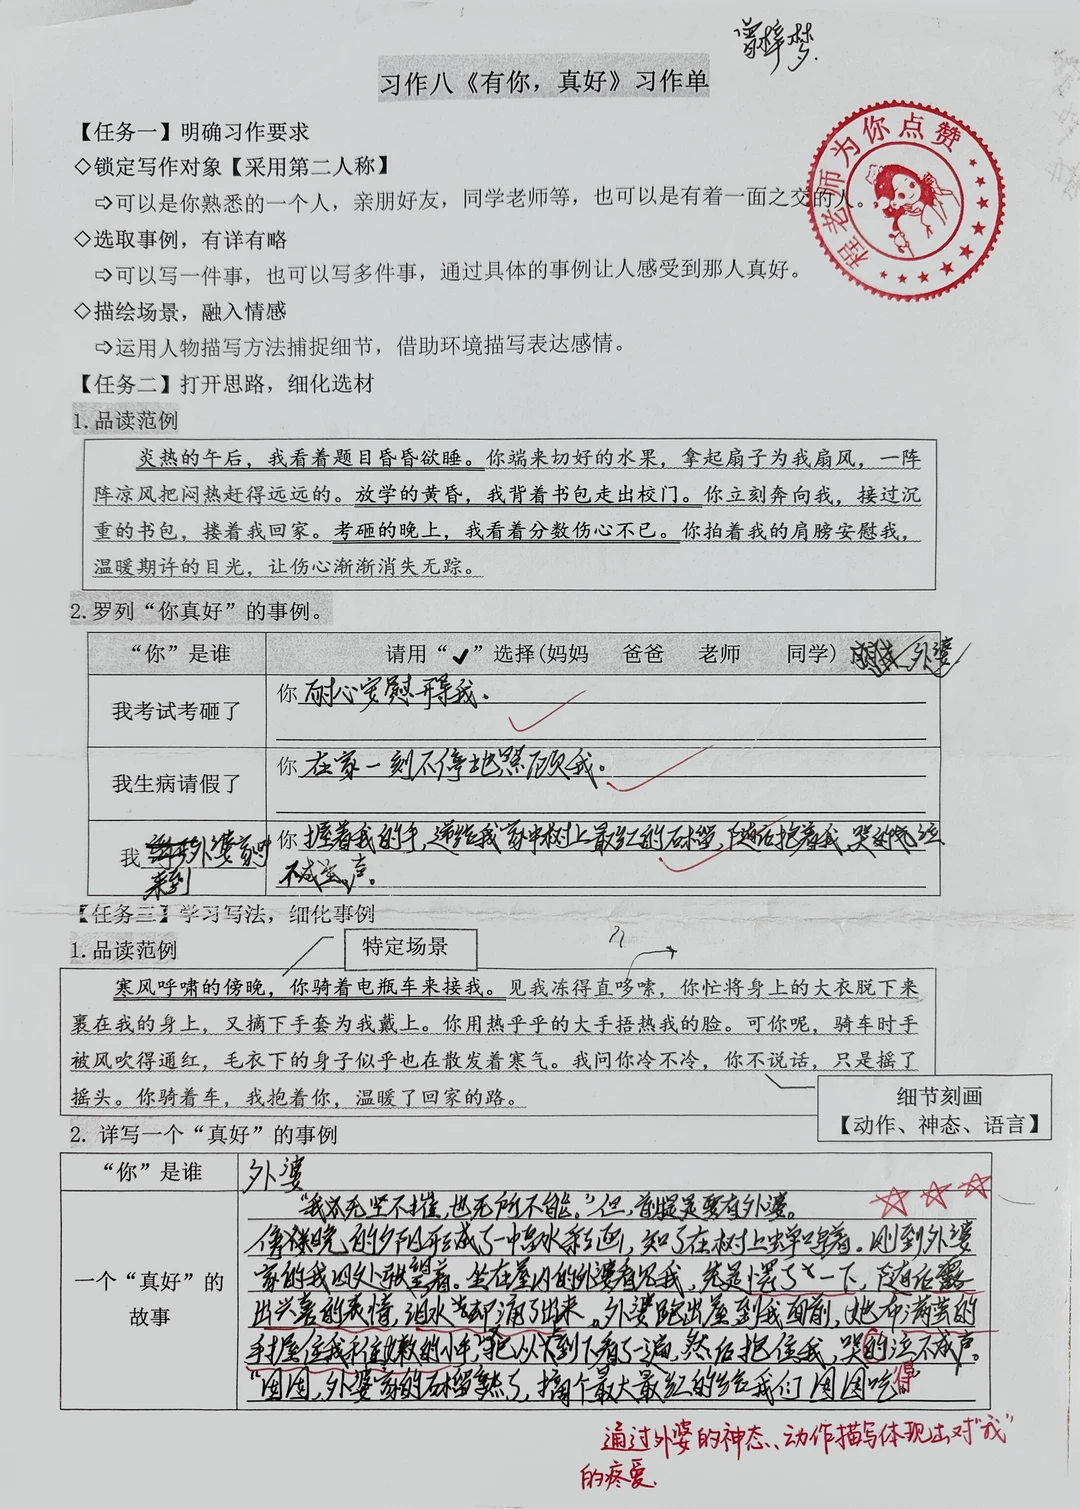 曾梓梦
习作八《有你，真好》习作单
程老师为你点赞
【任务一】明确习作要求
◇锁定写作对象【采用第二人称】
⇨可以是你熟悉的一个人，亲朋好友，同学老师等，也可以是有着一面之交的人。
◇选取事例，有详有略
⇨可以写一件事，也可以写多件事，通过具体的事例让人感受到那人真好。
◇描绘场景，融入情感
⇨运用人物描写方法捕捉细节，借助环境描写表达感情。
【任务二】打开思路，细化选材
1.品读范例
炎热的午后，我看着题目昏昏欲睡。你端来切好的水果，拿起扇子为我扇风，一阵
阵凉风把闷热赶得远远的。放学的黄昏，我背着书包走出校门。你立刻奔向我，接过沉
重的书包，搂着我回家。考砸的晚上，我看着分数伤心不已。你拍着我的肩膀安慰我，
温暖期许的目光，让伤心渐渐消失无踪。
2.罗列“你真好”的事例。
“你”是谁 请用“✓”选择(妈妈 爸爸 老师 同学) 外婆
我考试考砸了 你 耐心安慰开导我。
我生病请假了 你 在家一刻不停地照顾我。
我 外婆家时 你 握着我的手，递给我家中树上最红的石榴，随后抱着我，哭的泣
来到 不成声。
【任务三】学习写法，细化事例
1.品读范例 特定场景
寒风呼啸的傍晚，你骑着电瓶车来接我。见我冻得直哆嗦，你忙将身上的大衣脱下来
裹在我的身上，又摘下手套为我戴上。你用热乎乎的大手捂热我的脸。可你呢，骑车时手
被风吹得通红，毛衣下的身子似乎也在散发着寒气。我问你冷不冷，你不说话，只是摇了
摇头。你骑着车，我抱着你，温暖了回家的路。
细节刻画
【动作、神态、语言】
2. 详写一个“真好”的事例
“你”是谁 外婆
一个“真好”的
故事
“我无坚不摧，也无所不能。”但，前提是要有外婆。
傍晚的夕阳形成了一中水彩画，知了在树上蝉鸣着。刚到外婆
家的我四处张望着。坐在屋内的外婆看见我，先是愣了一下，随后露
出兴喜的表情，泪水却涌了出来。外婆跑出屋到我面前，她布满茧的
手握住我稚嫩的小手，把从大到下看了一遍，然后抱住我，哭的泣不成声。
“囡囡，外婆家的石榴熟了，摘个最大最红的给我们囡囡吃。”
得
通过外婆的神态、动作描写体现出对“我”
的疼爱.